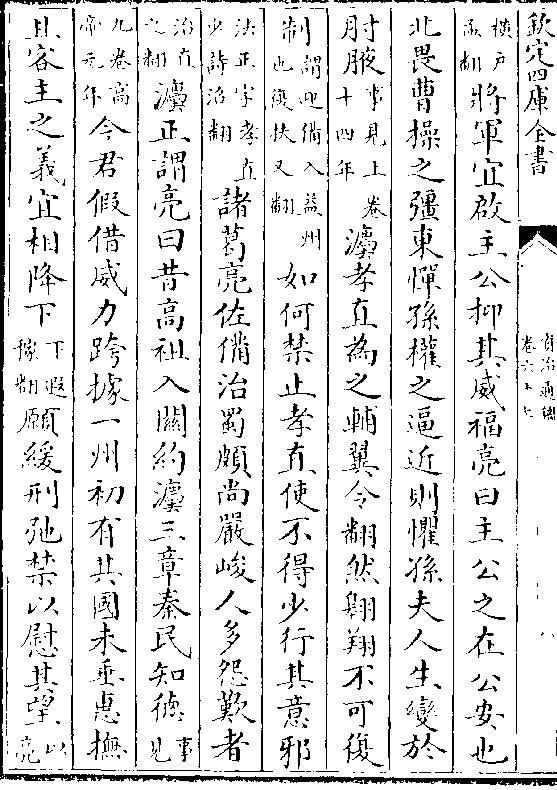 欽定四庫全書
資治通鑑
卷六十七
八
橫戶孟翻將軍宜啟主公抑其威福亮曰主公之在公安也
北畏曹操之彊東憚孫權之逼近則懼孫夫人生變於
肘腋事見上卷十四年灋孝直為之輔翼令翻然翺翔不可復
制謂迎備入益州制也復扶又翻如何禁止孝直使不得少行其意邪
法正字孝直少詩沼翻諸葛亮佐備治蜀頗尚嚴峻人多怨歎者
治直之翻灋正謂亮曰昔高祖入關約灋三章秦民知德事見
九卷高帝元年今君假借威力跨據一州初有其國未垂惠撫
且客主之義宜相降下下遐稼翻願緩刑弛禁以慰其望以亮